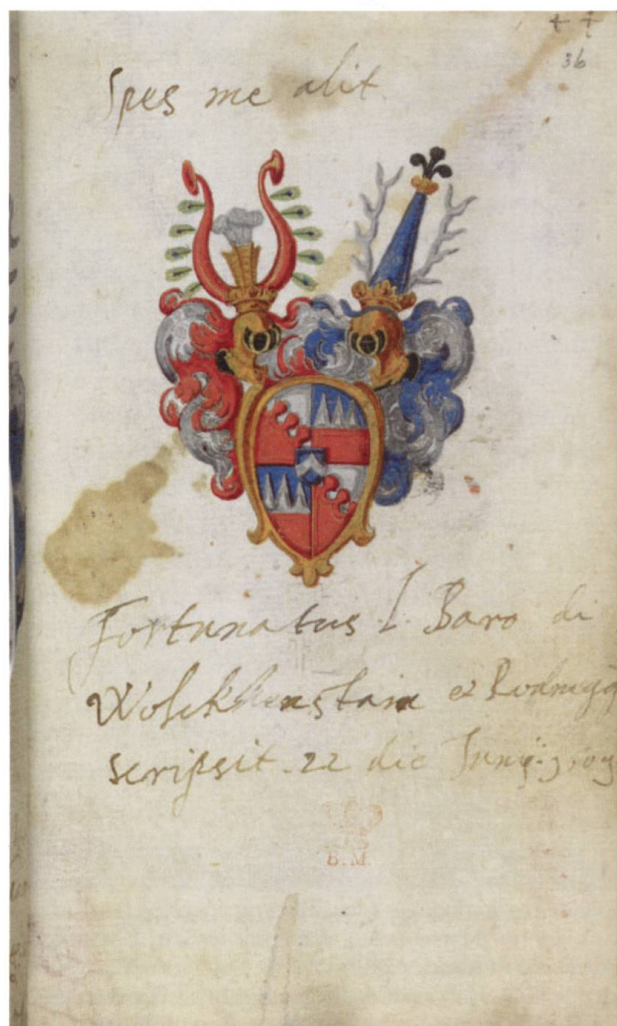 36
Spes me alit
Fortunatus L. Baro di
Wolckhenstain e Rodnegg
scripsit 22 die Junÿ
B. M.